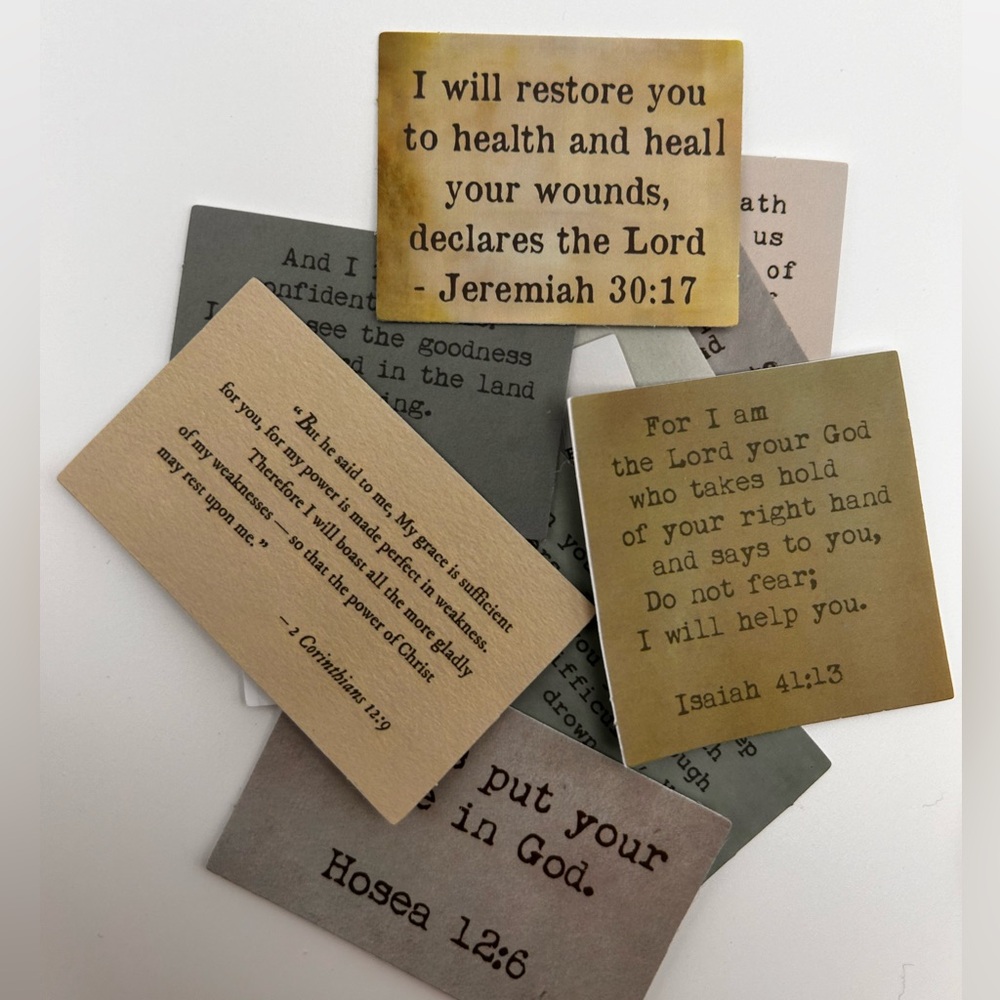 I will restore you
to health and heall
your wounds,
declares the Lord
- Jeremiah 30:17
ath
us
of
And I
onfident
see the goodness
in the land
ing.
“But he said to me, My grace is sufficient
for you, for my power is made perfect in weakness.
Therefore I will boast all the more gladly
of my weaknesses — so that the power of Christ
may rest upon me.”
– 2 Corinthians 12:9
For I am
the Lord your God
who takes hold
of your right hand
and says to you,
Do not fear;
I will help you.
Isaiah 41:13
drown
ep
ugh
put your
in God.
Hosea 12:6